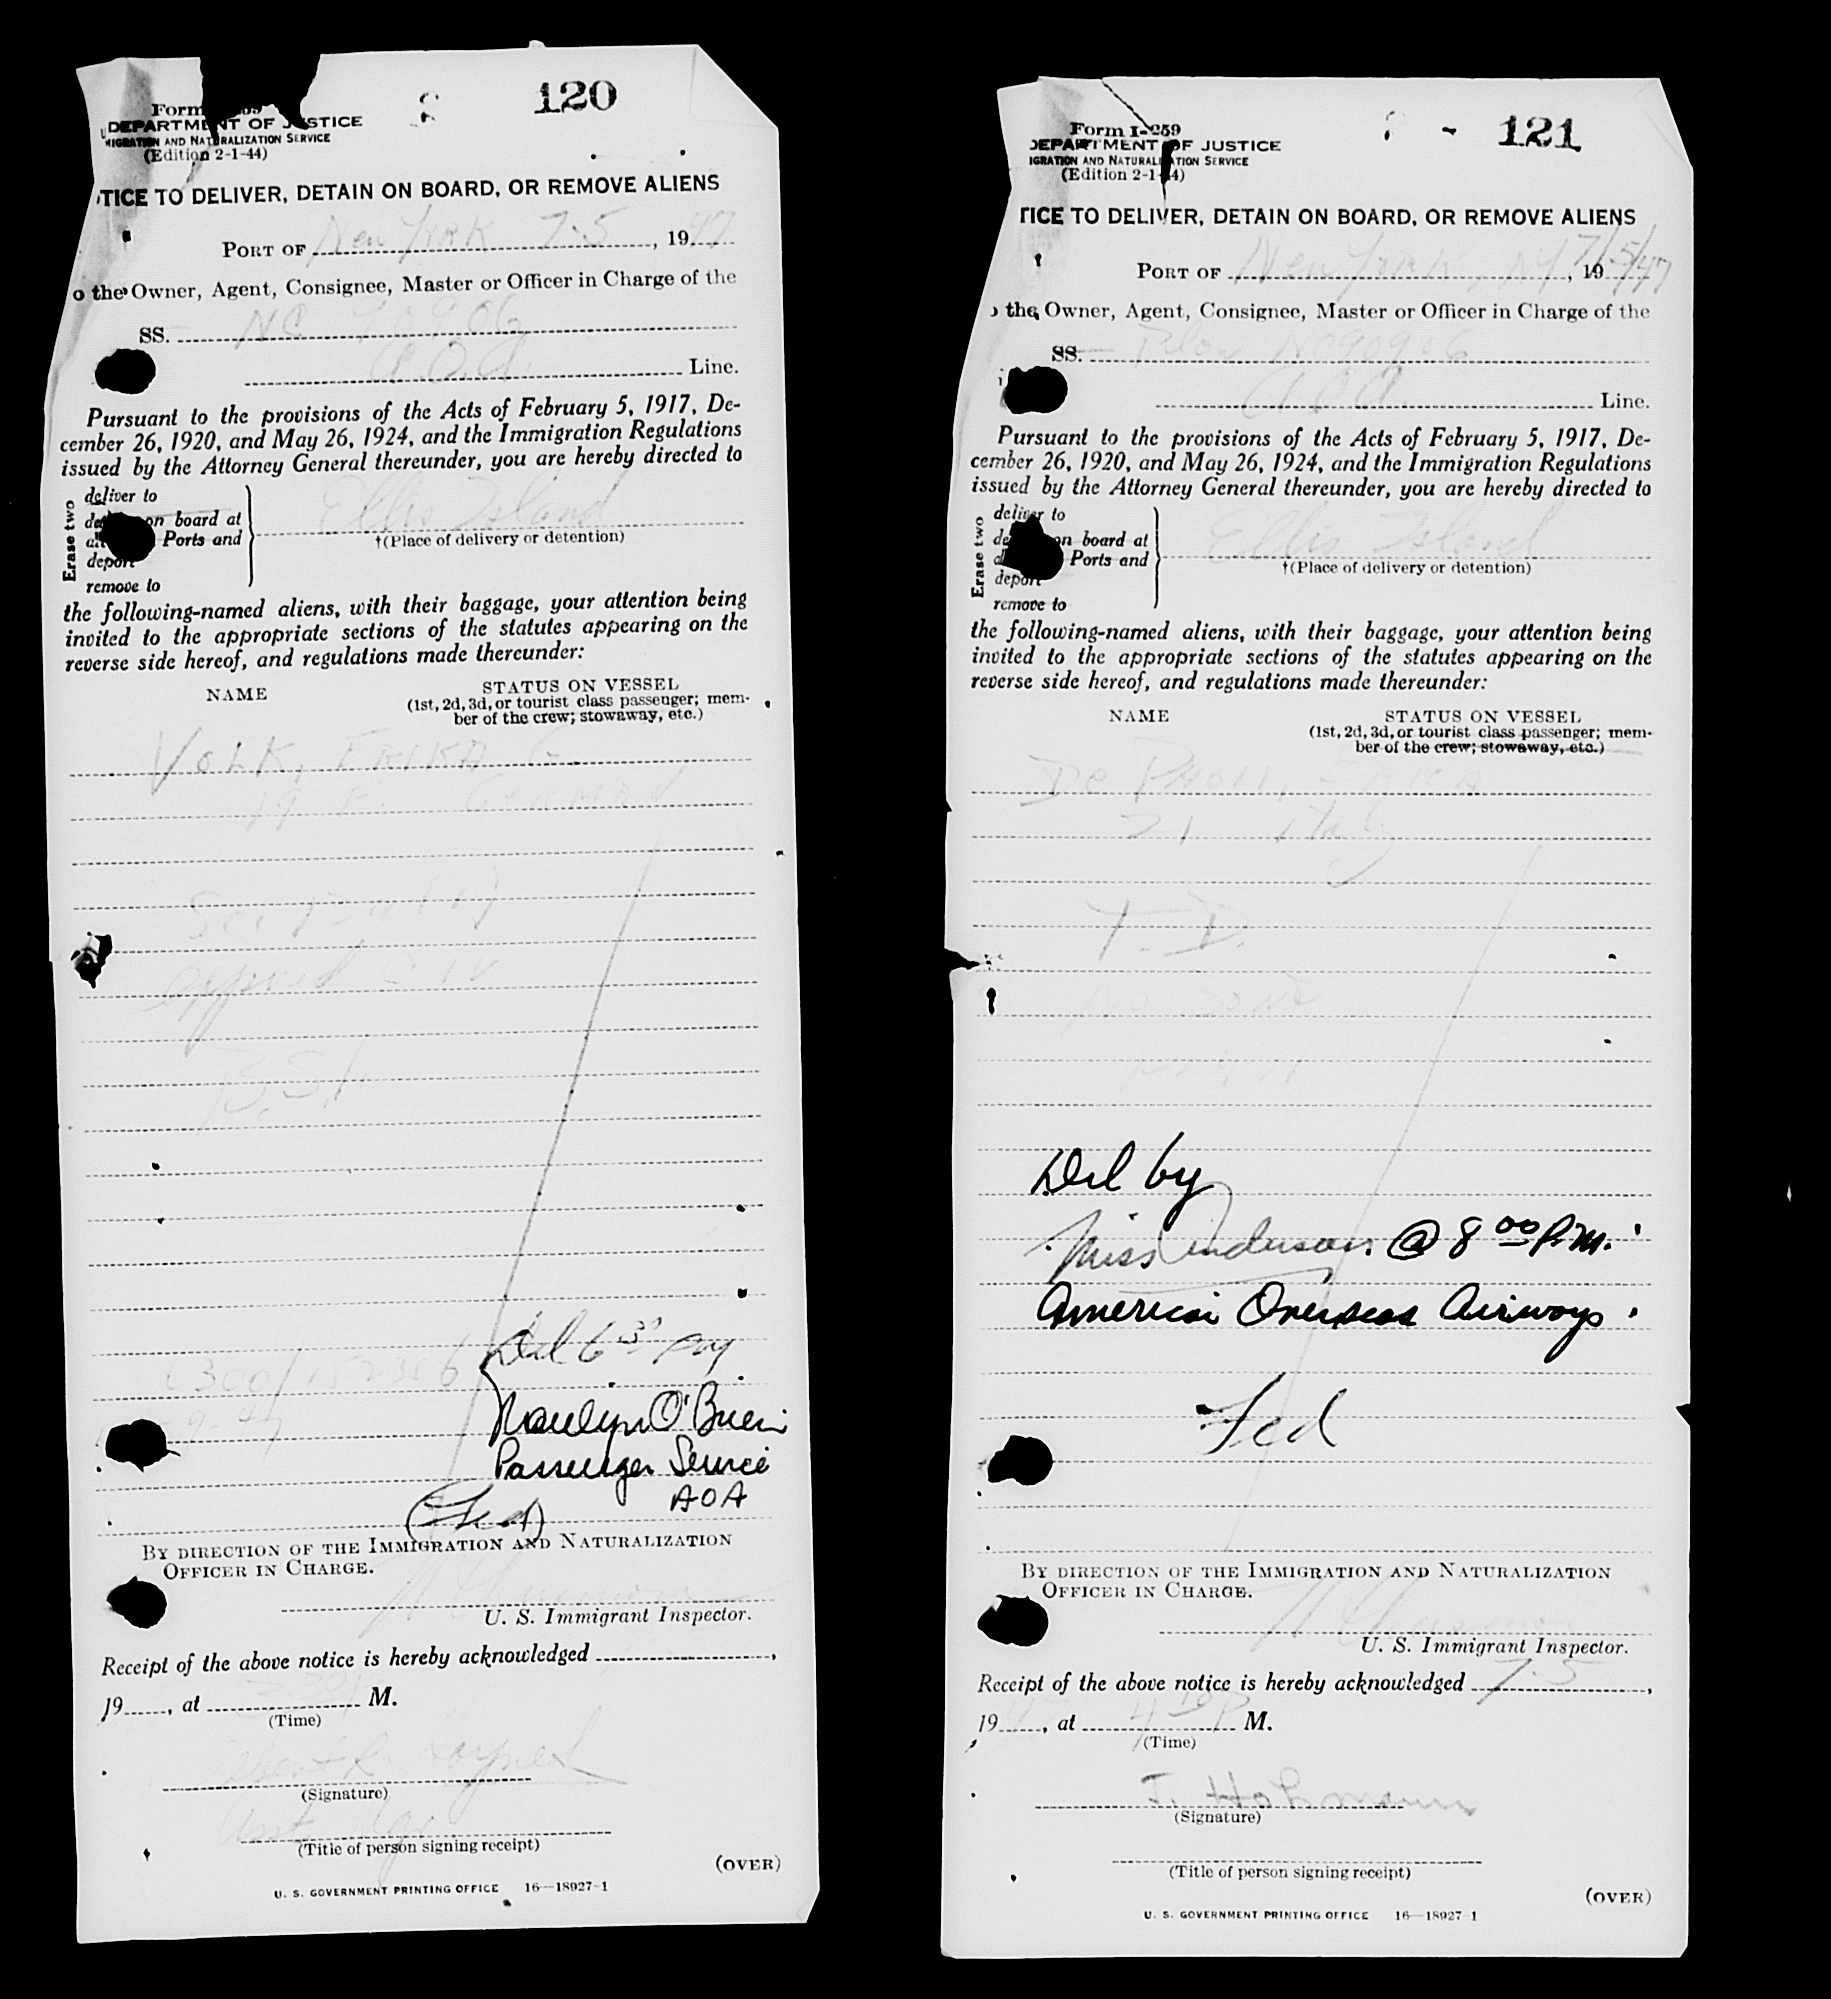 120
Form
DEPARTMENT OF JUSTICE
IMMIGRATION AND NATURALIZATION SERVICE
(Edition 2-1-44)
TICE TO DELIVER, DETAIN ON BOARD, OR REMOVE ALIENS
PORT OF New York 7-5, 1947
o the Owner, Agent, Consignee, Master or Officer in Charge of the
SS. NC 90906
A.O.A. Line.
Pursuant to the provisions of the Acts of February 5, 1917, De-
cember 26, 1920, and May 26, 1924, and the Immigration Regulations
issued by the Attorney General thereunder, you are hereby directed to
Erase two
deliver to
on board at
Ports and
deport
remove to
Ellis Island
†(Place of delivery or detention)
the following-named aliens, with their baggage, your attention being
invited to the appropriate sections of the statutes appearing on the
reverse side hereof, and regulations made thereunder:
NAME STATUS ON VESSEL
(1st, 2d, 3d, or tourist class passenger; mem-
ber of the crew; stowaway, etc.)
VOLK, ERIKA G.
19 F. Germany
B.S.I
Del 6 30 PM
O'Brien
Passenger Service
AOA
(Fed)
BY DIRECTION OF THE IMMIGRATION AND NATURALIZATION
OFFICER IN CHARGE.
U. S. Immigrant Inspector.
Receipt of the above notice is hereby acknowledged ,
19 , at M.
(Time)
(Signature)
Asst Mgr
(Title of person signing receipt)
(OVER)
U. S. GOVERNMENT PRINTING OFFICE 16—18927-1
121
Form I-259
DEPARTMENT OF JUSTICE
IGRATION AND NATURALIZATION SERVICE
(Edition 2-1-44)
TICE TO DELIVER, DETAIN ON BOARD, OR REMOVE ALIENS
PORT OF New York, NY 7/5/47, 19
the Owner, Agent, Consignee, Master or Officer in Charge of the
SS. Plane NC90906
AOA Line.
Pursuant to the provisions of the Acts of February 5, 1917, De-
cember 26, 1920, and May 26, 1924, and the Immigration Regulations
issued by the Attorney General thereunder, you are hereby directed to
Erase two
deliver to
on board at
Ports and
deport
remove to
Ellis Island
†(Place of delivery or detention)
the following-named aliens, with their baggage, your attention being
invited to the appropriate sections of the statutes appearing on the
reverse side hereof, and regulations made thereunder:
NAME STATUS ON VESSEL
(1st, 2d, 3d, or tourist class passenger; mem-
ber of the crew; stowaway, etc.)
21
T.D.
Del by
Miss Anderson @ 8 00 P.M.
American Overseas Airways
Fed
BY DIRECTION OF THE IMMIGRATION AND NATURALIZATION
OFFICER IN CHARGE.
U. S. Immigrant Inspector.
Receipt of the above notice is hereby acknowledged 7-5,
19 , at 4 10 P M.
(Time)
(Signature)
(Title of person signing receipt)
(OVER)
U. S. GOVERNMENT PRINTING OFFICE 16—18927-1